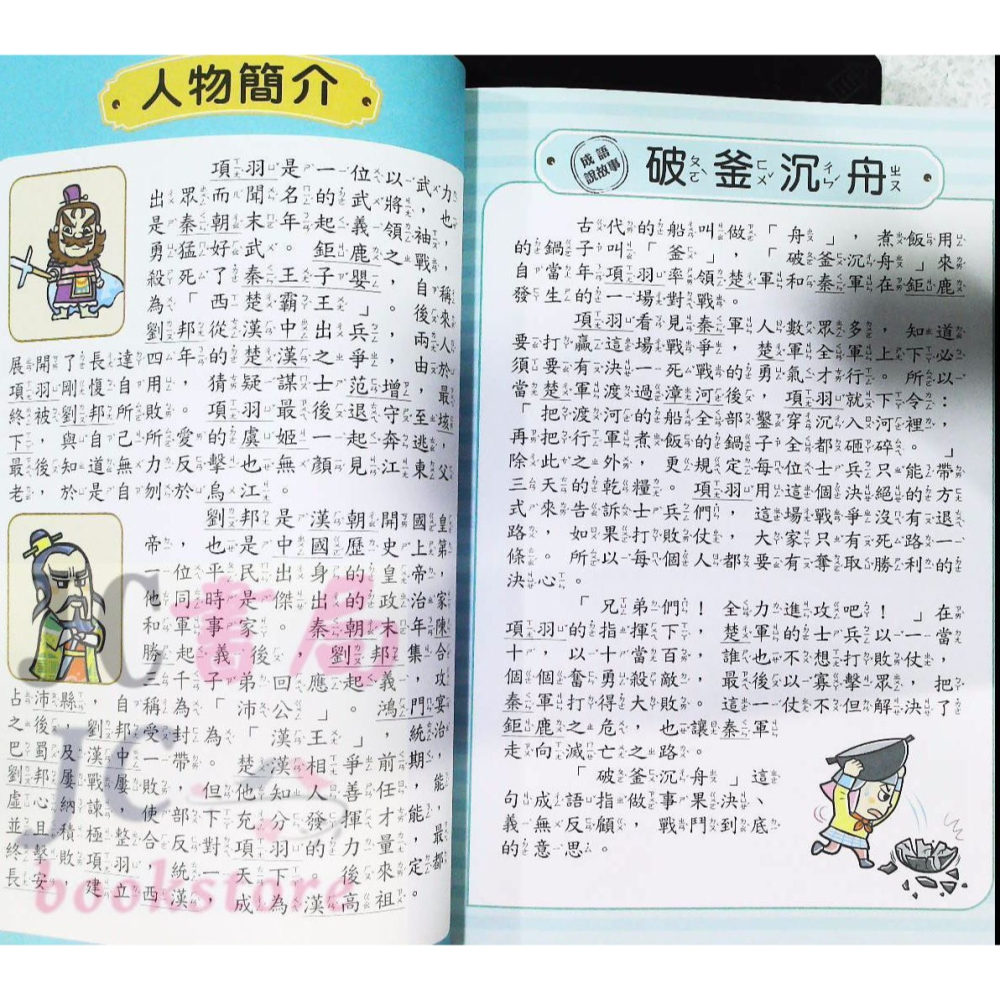 人物簡介
項羽是一位以武力
出眾而聞名的武將，也
是秦朝末年起義領袖，
勇猛好武。鉅鹿之戰，
殺死了秦王子嬰，自稱
為「西楚霸王」。後來
劉邦從漢中出兵，兩人
展開了長達四年的楚漢之爭，由於
項羽剛愎自用，猜疑謀士范增，最
終被劉邦所敗。項羽最後退守至垓
下，與自己所愛的虞姬一起奔逃，
最後知道無力反擊也無顏見江東父
老，於是自刎於烏江。
劉邦是漢朝開國皇
帝，也是中國歷史上第
一位平民出身的皇帝，
他同時是傑出的政治家
和軍事家。秦朝末年陳
勝起義後，劉邦集合
三千子弟回應起義，攻
占沛縣，自稱為「沛公」。鴻門宴
之後，劉邦受封為「漢王」，統治
巴蜀及漢中一帶。楚漢相爭前期，
劉邦屢戰屢敗，但他知人善任，能
虛心納諫，使部下充分發揮才能，
並且積極整合反對項羽的力量，最
終擊敗項羽，統一天下。後來定都
長安，建立西漢，成為漢高祖。
成語
說故事
破釜沉舟
古代的船叫做「舟」，煮飯用
的鍋子叫「釜」，「破釜沉舟」來
自當年項羽率領楚軍和秦軍在鉅鹿
發生的一場對戰。
項羽看見秦軍人數眾多，知道
要打贏這場戰爭，楚軍全軍上下必
須要有決一死戰的勇氣才行。所以
當楚軍渡過漳河後，項羽就下令：
「把渡河的船全部鑿穿沉入河裡，
再把行軍煮飯的鍋子全都砸碎。」
除此之外，更規定每位士兵只能帶
三天的乾糧。項羽用這個決絕的方
式來告訴士兵們，這場戰爭沒有退
路，如果打敗仗，大家只有死路一
條。所以每個人都要有奪取勝利的
決心。
「兄弟們！全力進攻吧！」在
項羽的指揮下，楚軍的士兵以一當
十，以十當百，誰也不想打敗仗，
個個奮勇殺敵，最後以寡擊眾，把
秦軍打得大敗。這一仗不但解決了
鉅鹿之危，也讓秦軍
走向滅亡之路。
「破釜沉舟」這
句成語指做事果決、
義無反顧，戰鬥到底
的意思。
JC書局
JC
bookstore